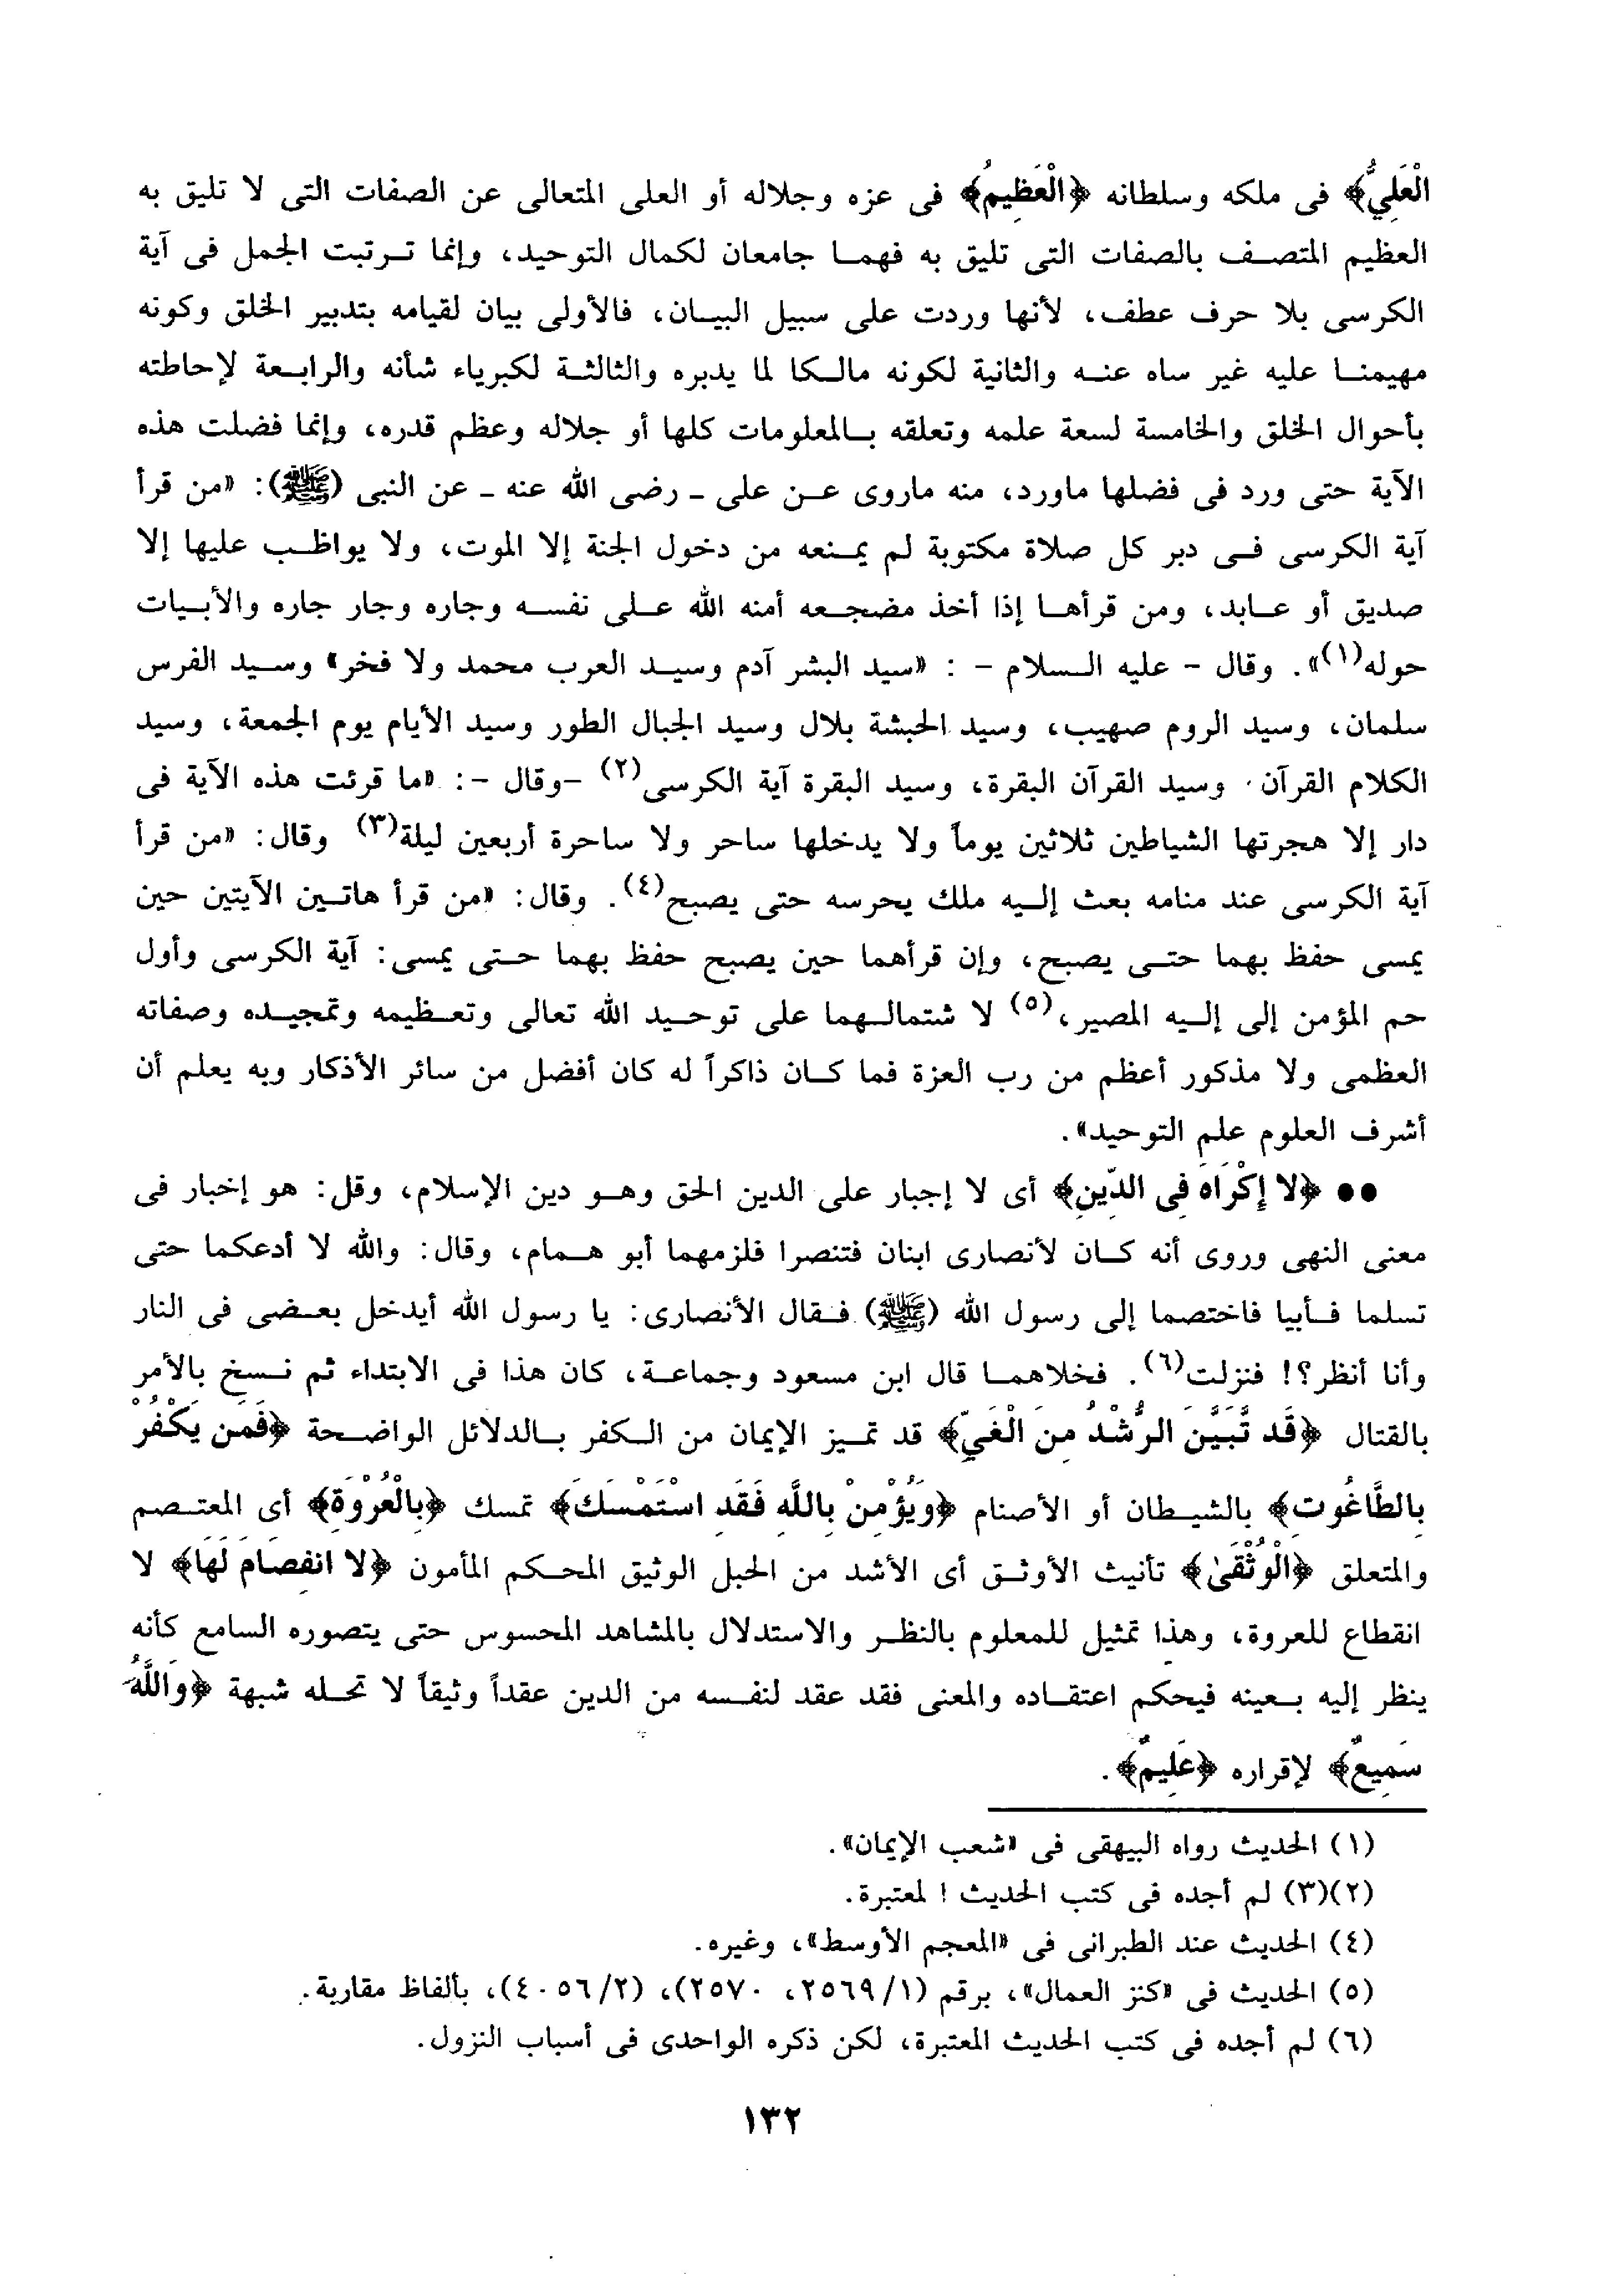 الْعَلِيُّ﴾ فى ملكه وسلطانه ﴿الْعَظِيمُ﴾ فى عزه وجلاله أو العلى المتعالى عن الصفات التى لا تليق به
العظيم المتصف بالصفات التى تليق به فهما جامعان لكمال التوحيد، وإنما ترتبت الجمل فى آية
الكرسى بلا حرف عطف، لأنها وردت على سبيل البيان، فالأولى بيان لقيامه بتدبير الخلق وكونه
مهيمنا عليه غير ساه عنه والثانية لكونه مالكا لما يدبره والثالثة لكبرياء شأنه والرابعة لإحاطته
بأحوال الخلق والخامسة لسعة علمه وتعلقه بالمعلومات كلها أو جلاله وعظم قدره، وإنما فضلت هذه
الآية حتى ورد فى فضلها ماورد، منه ماروى عن على ـ رضى الله عنه ـ عن النبى (ﷺ): «من قرأ
آية الكرسى فى دبر كل صلاة مكتوبة لم يمنعه من دخول الجنة إلا الموت، ولا يواظب عليها إلا
صديق أو عابد، ومن قرأها إذا أخذ مضجعه أمنه الله على نفسه وجاره وجار جاره والأبيات
حوله(١)». وقال - عليه السلام - : «سيد البشر آدم وسيد العرب محمد ولا فخر» وسيد الفرس
سلمان، وسيد الروم صهيب، وسيد الحبشة بلال وسيد الجبال الطور وسيد الأيام يوم الجمعة، وسيد
الكلام القرآن. وسيد القرآن البقرة، وسيد البقرة آية الكرسى(٢) -وقال -: «ما قرئت هذه الآية فى
دار إلا هجرتها الشياطين ثلاثين يوماً ولا يدخلها ساحر ولا ساحرة أربعين ليلة(٣) وقال: «من قرأ
آية الكرسى عند منامه بعث إليه ملك يحرسه حتى يصبح(٤). وقال: «من قرأ هاتين الآيتين حين
يمسى حفظ بهما حتى يصبح، وإن قرأهما حين يصبح حفظ بهما حتى يمسى: آية الكرسى وأول
حم المؤمن إلى إليه المصير،(٥) لا شتمالهما على توحيد الله تعالى وتعظيمه وتمجيده وصفاته
العظمى ولا مذكور أعظم من رب العزة فما كان ذاكراً له كان أفضل من سائر الأذكار وبه يعلم أن
أشرف العلوم علم التوحيد».
●● ﴿لا إِكْرَاهَ فِي الدِّينِ﴾ أى لا إجبار على الدين الحق وهو دين الإسلام، وقل: هو إخبار فى
معنى النهى وروى أنه كان لأنصارى ابنان فتنصرا فلزمهما أبو همام، وقال: والله لا أدعكما حتى
تسلما فأبيا فاختصما إلى رسول الله (ﷺ) فقال الأنصارى: يا رسول الله أيدخل بعضى فى النار
وأنا أنظر؟! فنزلت(٦). فخلاهما قال ابن مسعود وجماعة، كان هذا فى الابتداء ثم نسخ بالأمر
بالقتال ﴿قَد تَّبَيَّنَ الرُّشْدُ مِنَ الْغَيِّ﴾ قد تميز الإيمان من الكفر بالدلائل الواضحة ﴿فَمَن يَكْفُرْ
بِالطَّاغُوتِ﴾ بالشيطان أو الأصنام ﴿وَيُؤْمِنْ بِاللَّهِ فَقَدِ اسْتَمْسَكَ﴾ تمسك ﴿بِالْعُرْوَةِ﴾ أى المعتصم
والمتعلق ﴿الْوُثْقَىٰ﴾ تأنيث الأوثق أى الأشد من الحبل الوثيق المحكم المأمون ﴿لا انفِصَامَ لَهَا﴾ لا
انقطاع للعروة، وهذا تمثيل للمعلوم بالنظر والاستدلال بالمشاهد المحسوس حتى يتصوره السامع كأنه
ينظر إليه بعينه فيحكم اعتقاده والمعنى فقد عقد لنفسه من الدين عقداً وثيقاً لا تحله شبهة ﴿وَاللَّهُ
سَمِيعٌ﴾ لإقراره ﴿عَلِيمٌ﴾.
(١) الحديث رواه البيهقى فى «شعب الإيمان».
(٢)(٣) لم أجده فى كتب الحديث ا لمعتبرة.
(٤) الحديث عند الطبرانى فى «المعجم الأوسط»، وغيره.
(٥) الحديث فى «كنز العمال»، برقم (٢٥٦٩/١، ٢٥٧٠)، (٤٠٥٦/٢)، بألفاظ مقاربة.
(٦) لم أجده فى كتب الحديث المعتبرة، لكن ذكره الواحدى فى أسباب النزول.
١٣٢